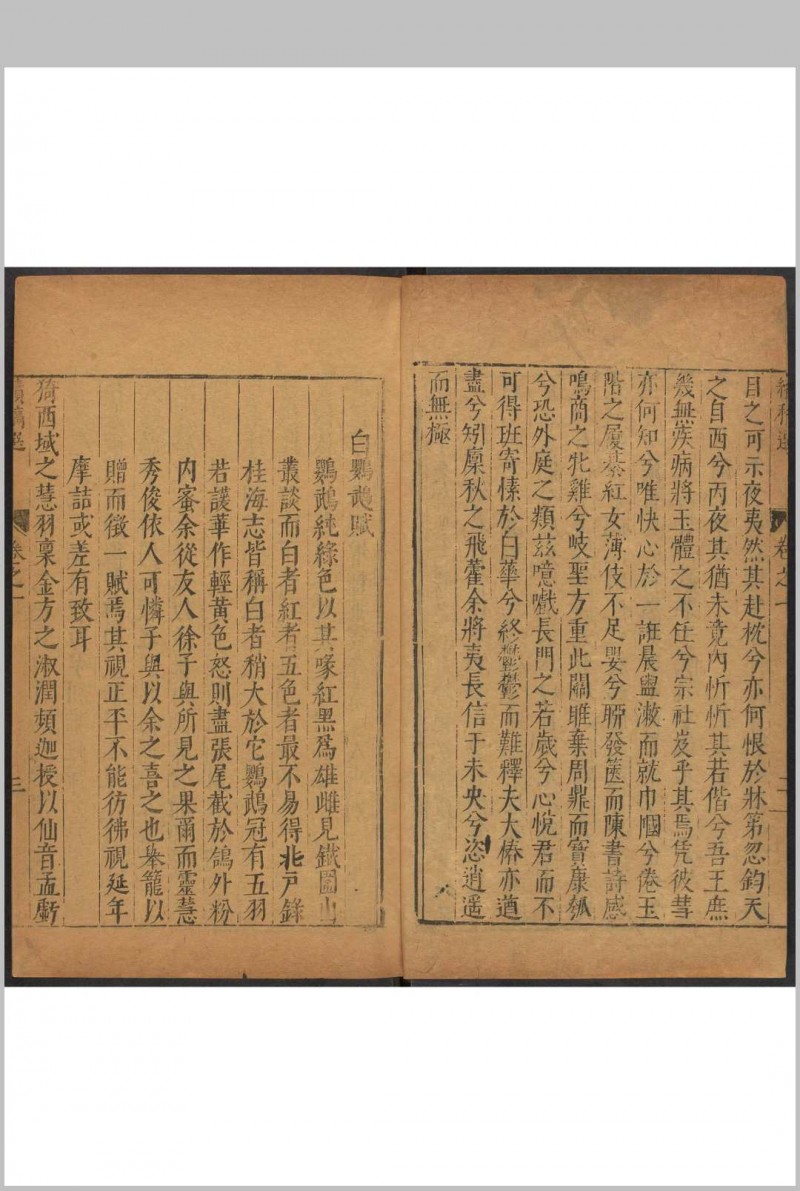 目之可示夜夷然其赴枕兮亦何恨於牀第忽鈞天
之自西兮丙夜其猶未竟內忻忻其若偕兮吾王庶
幾無疾病將玉體之不任兮宗社岌乎其焉凭彼彗
亦何知兮唯快心於一誑晨盥漱而就巾幗兮倦玉
階之屨綦紅女薄伎不足嬰兮聊發篋而陳書詩感
鳴商之牝雞兮岐聖方重此關雎棄周鼎而寶康瓠
兮恐外庭之類茲噫嚱長門之若歲兮心悅君而不
可得班寄愫於白華兮終鬱鬱而難釋夫大椿亦遒
盡兮矧廩秋之飛藿余將夷長信于未央兮恣逍遙
而無極
卷之一
二
白鸚鵡賦
鸚鵡純綠色以其喙紅黑爲雄雌見鐵圍山
叢談而白者紅者五色者最不易得北戸錄
桂海志皆稱白者稍大於它鸚鵡冠有五羽
若護華作輕黃色怒則盡張尾截於鴿外粉
內蜜余從友人徐子與所見之果爾而靈慧
秀俊依人可憐子與以余之喜之也擧籠以
贈而徵一賦焉其視正平不能彷彿視延年
摩詰或差有致耳
猗西域之慧羽稟金方之淑潤頻迦授以仙音孟虧
卷之一
三